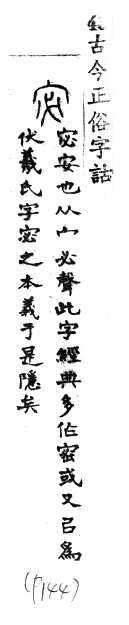 古今正俗字詁
宓
宓安也从宀必聲此字經典多作密或又㠯爲
伏羲氏字宓之本義于是隱矣
(P144)